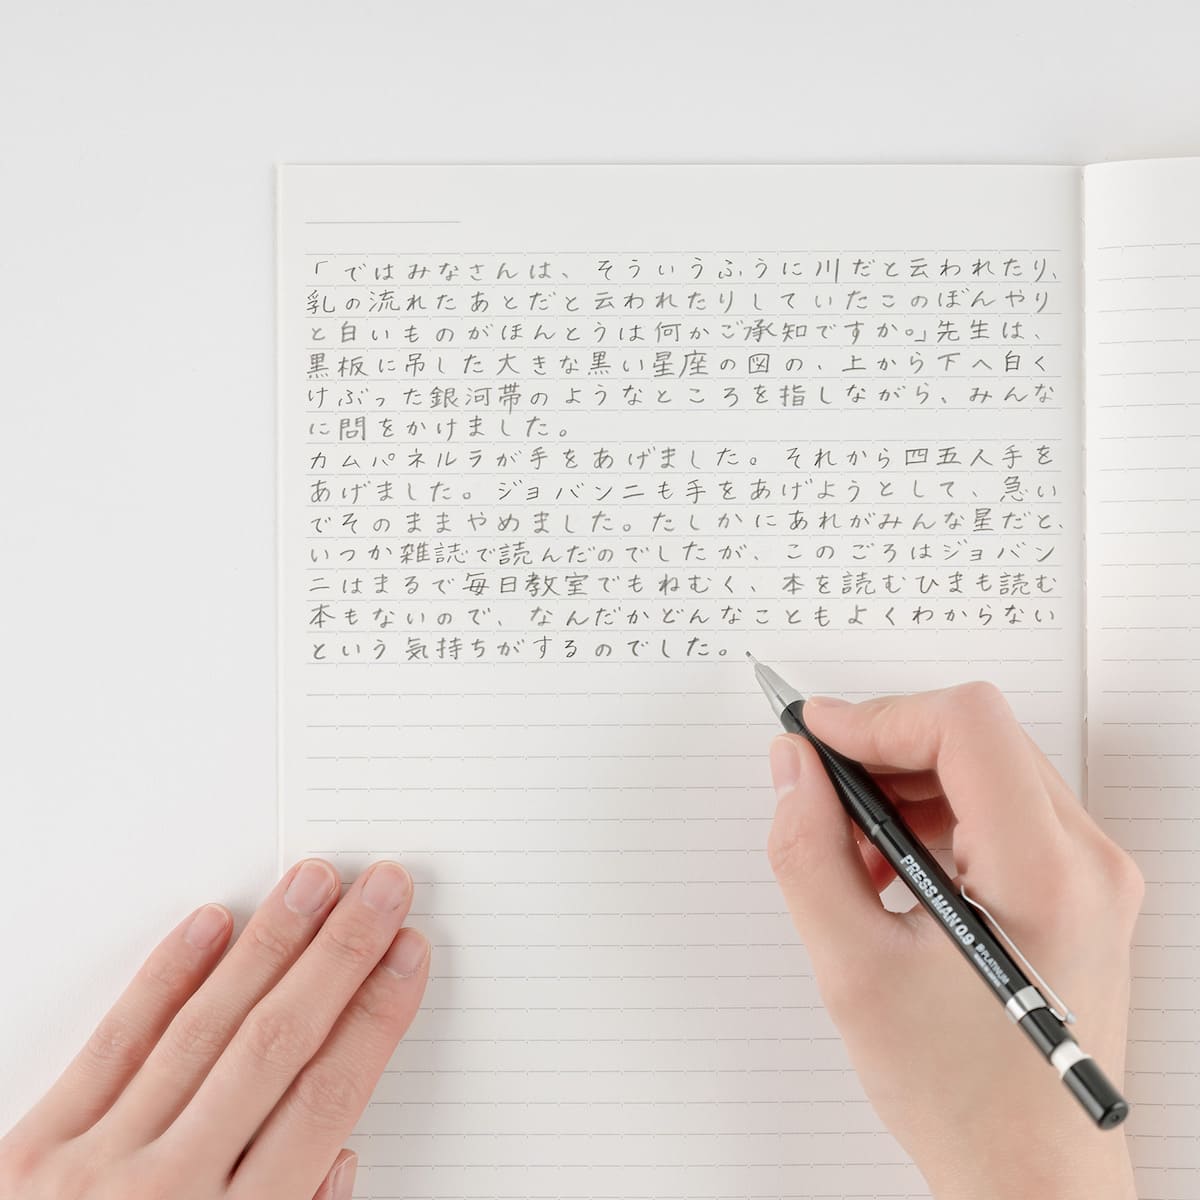 「ではみなさんは、そういうふうに川だと云われたり、
乳の流れたあとだと云われたりしていたこのぼんやり
と白いものがほんとうは何かご承知ですか。」先生は、
黒板に吊した大きな黒い星座の図の、上から下へ白く
けぶった銀河帯のようなところを指しながら、みんな
に問をかけました。
カムパネルラが手をあげました。それから四五人手を
あげました。ジョバンニも手をあげようとして、急い
でそのままやめました。たしかにあれがみんな星だと、
いつか雑誌で読んだのでしたが、このごろはジョバン
ニはまるで毎日教室でもねむく、本を読むひまも読む
本もないので、なんだかどんなこともよくわからない
という気持ちがするのでした。
PRESS MAN 0.9
PLATINUM